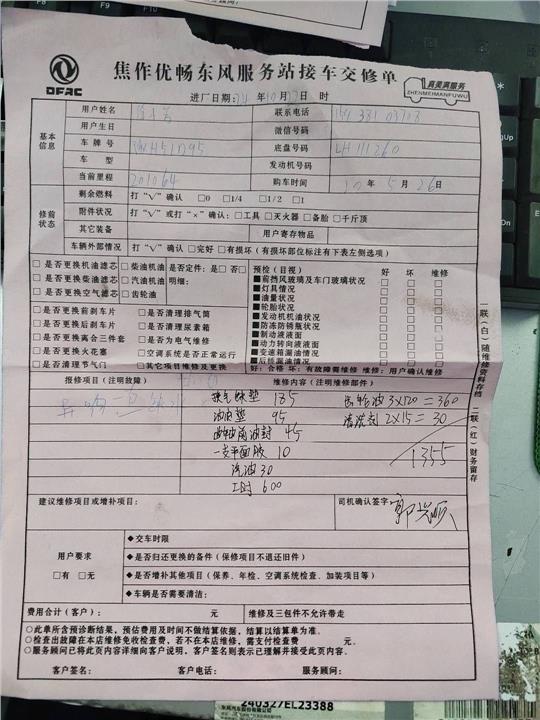 DFAC
焦作优畅东风服务站接车交修单
真美满服务
ZHENMEIMANFUWU
进厂日期: 年10月 日 时
基本信息
用户姓名
联系电话
用户生日
微信号码
车牌号
底盘号码 LH111260
车型
发动机号码
当前里程 201064
购车时间 10年5月26日
修前状态
剩余燃料 打“√”确认 □0 □1/4 □1/2 □1
附件状况 打“√”或打“×”确认:□工具 □灭火器 □备胎 □千斤顶
其它装备 用户寄存物品
车辆外部情况 打“√”确认 □完好 □有损坏(有损坏部位标注有下表左侧选项)
□是否更换机油滤芯 □柴油机油 是否定件:是□ 否□
□是否更换柴油滤芯 □汽油机油 明细:
□是否更换空气滤芯 □齿轮油
□是否更换前刹车片 □是否清理排气筒
□是否更换后刹车片 □是否清理尿素箱
□是否更换离合三件套 □是否为电气维修
□是否更换火花塞 □空调系统是否正常运行
□是否清理节气门 □其它项目维修及更换
预检(目视) 好 坏 维修
■前挡风玻璃及车门玻璃状况 □ □ □
■灯具情况 □ □ □
■油量状况 □ □ □
■轮胎状况 □ □ □
■发动机机油状况 □ □ □
■防冻防锈瓶状况 □ □ □
■制动液液面 □ □ □
■动力转向液液面 □ □ □
■变速箱漏油情况 □ □ □
■后桥漏油情况 □ □ □
好:合格 坏:有故障需维修 维修:用户确认维修
报修项目(注明故障) 维修内容(注明维修部件)
135 齿轮油3×120=360
95 清洗剂2×15=30
曲轴前油封 45
一支平面胶 10 1355
汽油30
工时 600
建议维修项目或增补项目: 司机确认签字:
用户要求
□有 □无
◆交车时限
◆是否归还更换的备件(保修项目不退还旧件)
◆是否增补其他项目(保养、年检、空调系统检查、加装项目等)
◆车辆是否需要清洁:
费用合计(客户): 元 维修及三包件不允许带走
○此单所含预诊断结果,预估费用及时间不做结算依据,结算以结算单为准。
○检查出故障在本店维修免收检查费,若不在本店维修,需支付检查费 元。
○服务顾问已将此页内容详细向客户说明,客户签名则表示已理解并接受此页内容。
客户签名: 客户电话: 服务顾问:
一联(白)随维修资料存档 二联(红)财务留存
240327EL23388